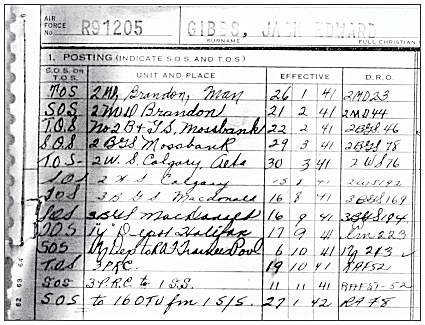 AIR FORCE No R91205 GIBBS, JACK EDWARD
SURNAME FULL CHRISTIAN
1. POSTING (INDICATE S.O.S AND T.O.S)
S.O.S. OR T.O.S. UNIT AND PLACE EFFECTIVE D.R.O.
TOS 2 MD, Brandon, Man 26 1 41 2MD23
SOS 2 M D Brandon 21 2 41 2MD44
T.O.S No 2 B & G.S. Mossbank 22 2 41 2BGS 46
S.O.S 2 BGS Mossbank 29 3 41 2BGS 78
T.O.S- 2 W.S. Calgary, Alta 30 3 41 2 WS 76
SOS 2 W S Calgary 15 8 41 2WS192
TOS 3 B G S Macdonald 16 8 41 3BGS169
SOS 3BGS MacDonald 16 9 41 3BGS194
TOS "Y" Depot Halifax 17 9 41 223
SOS Dep to RAF Trainees Pool 6 10 41 243
T.O.S 3 P.R.C. 19 10 41 RAF52
SOS 3 P.R.C to 1 S.S. 11 11 41 RAF51-52
SOS to 16 OTU fm 1S/S. 27 1 42 RAF8
62 63 64